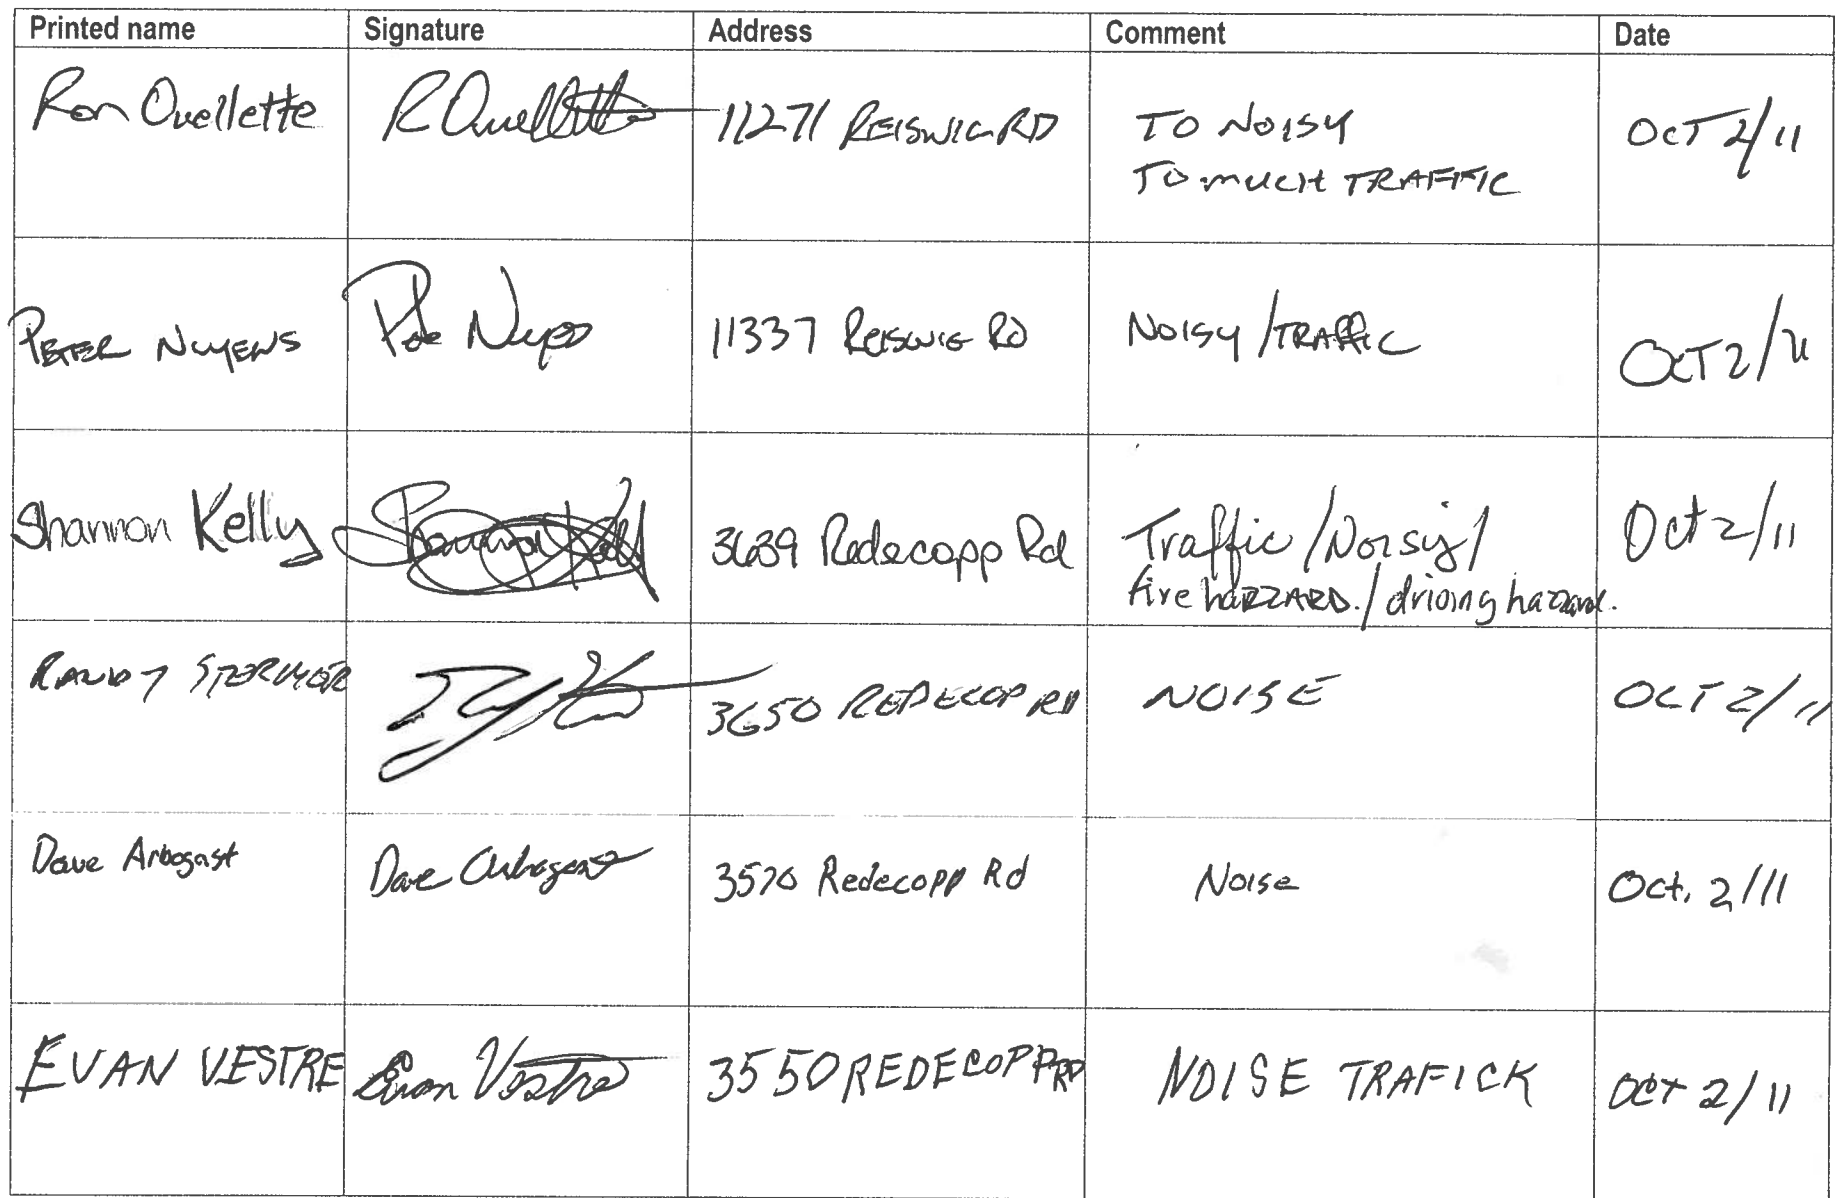 Printed name Signature Address Comment Date
Ron Ouellette R Ouellette 11271 REISWIG RD TO NOISY OCT 2/11
TO MUCH TRAFFIC
PETER NUYENS Pete Nuyens 11337 REISWIG RD NOISY/TRAFFIC OCT 2/11
Shannon Kelly Shannon Kelly 3639 Redecopp Rd Traffic/Noisy/ Oct 2/11
fire hazZARD./driving hazzard.
RANDY 3650 REDECOP RD NOISE OCT 2/11
Dave Arbogast Dave Arbogast 3570 Redecopp Rd Noise Oct. 2/11
EVAN VESTRE Evan Vestre 3550 REDECOPP RD NOISE TRAFICK OCT 2/11